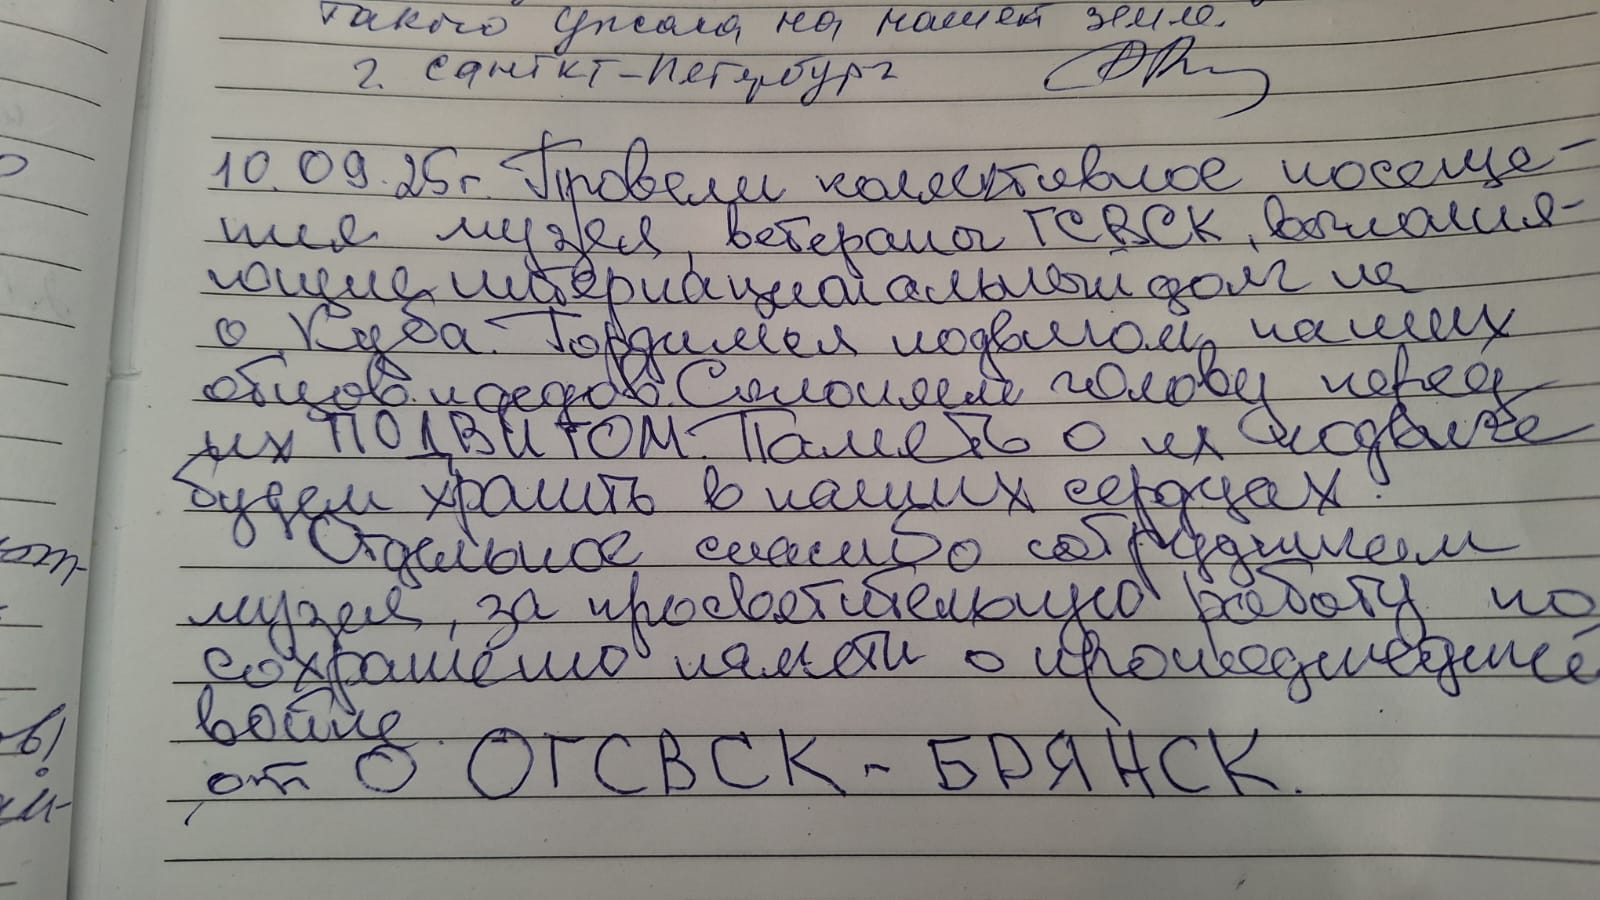 такого ужаса на нашей земле.
г. Санкт-Петербург
10.09.25г. Провели коллективное посеще-
ния музея, ветераны ГСВСК, выполня-
ющие интернациональный долг на
о. Куба. Гордимся подвигом, наших
отцов и дедов. Склоняем голову перед
их ПОДВИГОМ. Память о их подвиге
будем хранить в наших сердцах.
Отдельное спасибо сотрудникам
музея, за просветительную работу по
сохранению памяти о произошедшей
войне.
от О ОГСВСК - БРЯНСК.